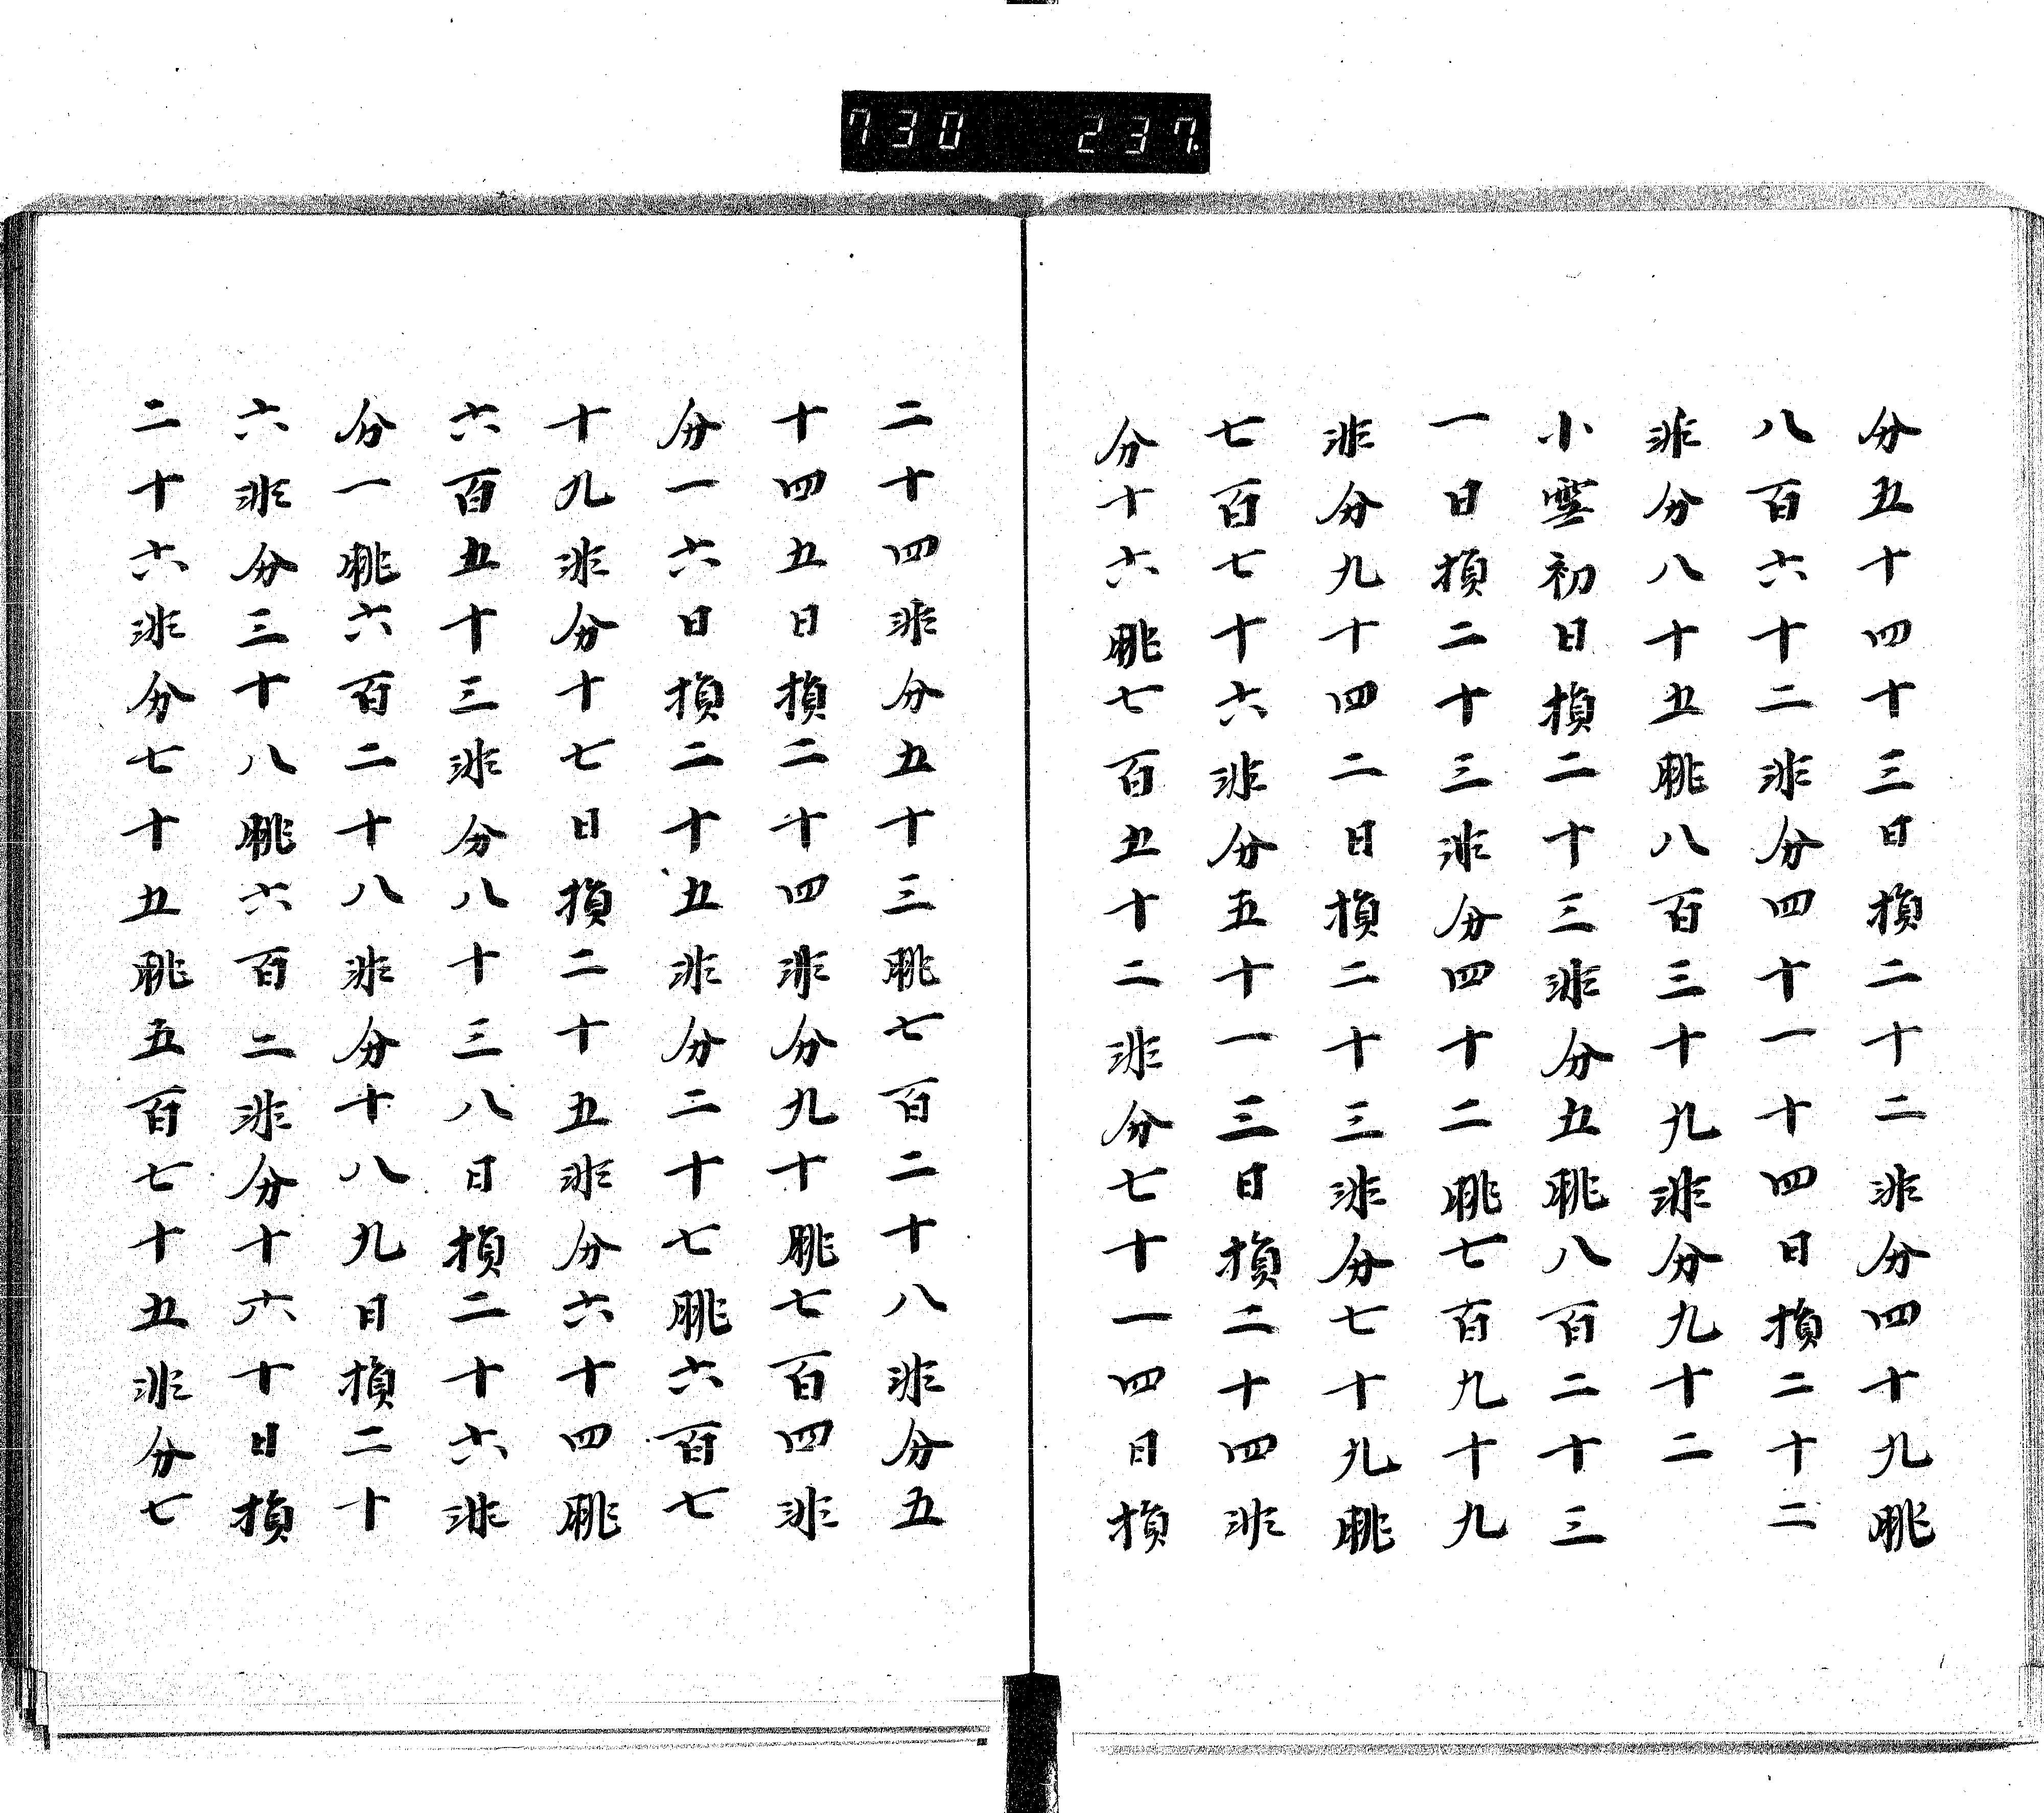 730 237.
分五十四十三日損二十二非分四十九朓
八百六十二非分四十一十四日損二十二
非分八十五朓八百三十九非分九十二
小雪初日損二十三非分五朓八百二十三
一日損二十三非分四十二朓七百九十九
非分九十四二日損二十三非分七十九朓
七百七十六非分五十一三日損二十四非
分十六朓七百五十二非分七十一四日損
二十四非分五十三朓七百二十八非分五
十四五日損二十四非分九十朓七百四非
分一六日損二十五非分二十七朓六百七
十九非分十七日損二十五非分六十四朓
六百五十三非分八十三八日損二十六非
分一朓六百二十八非分十八九日損二十
六非分三十八朓六百二非分十六十日損
二十六非分七十五朓五百七十五非分七